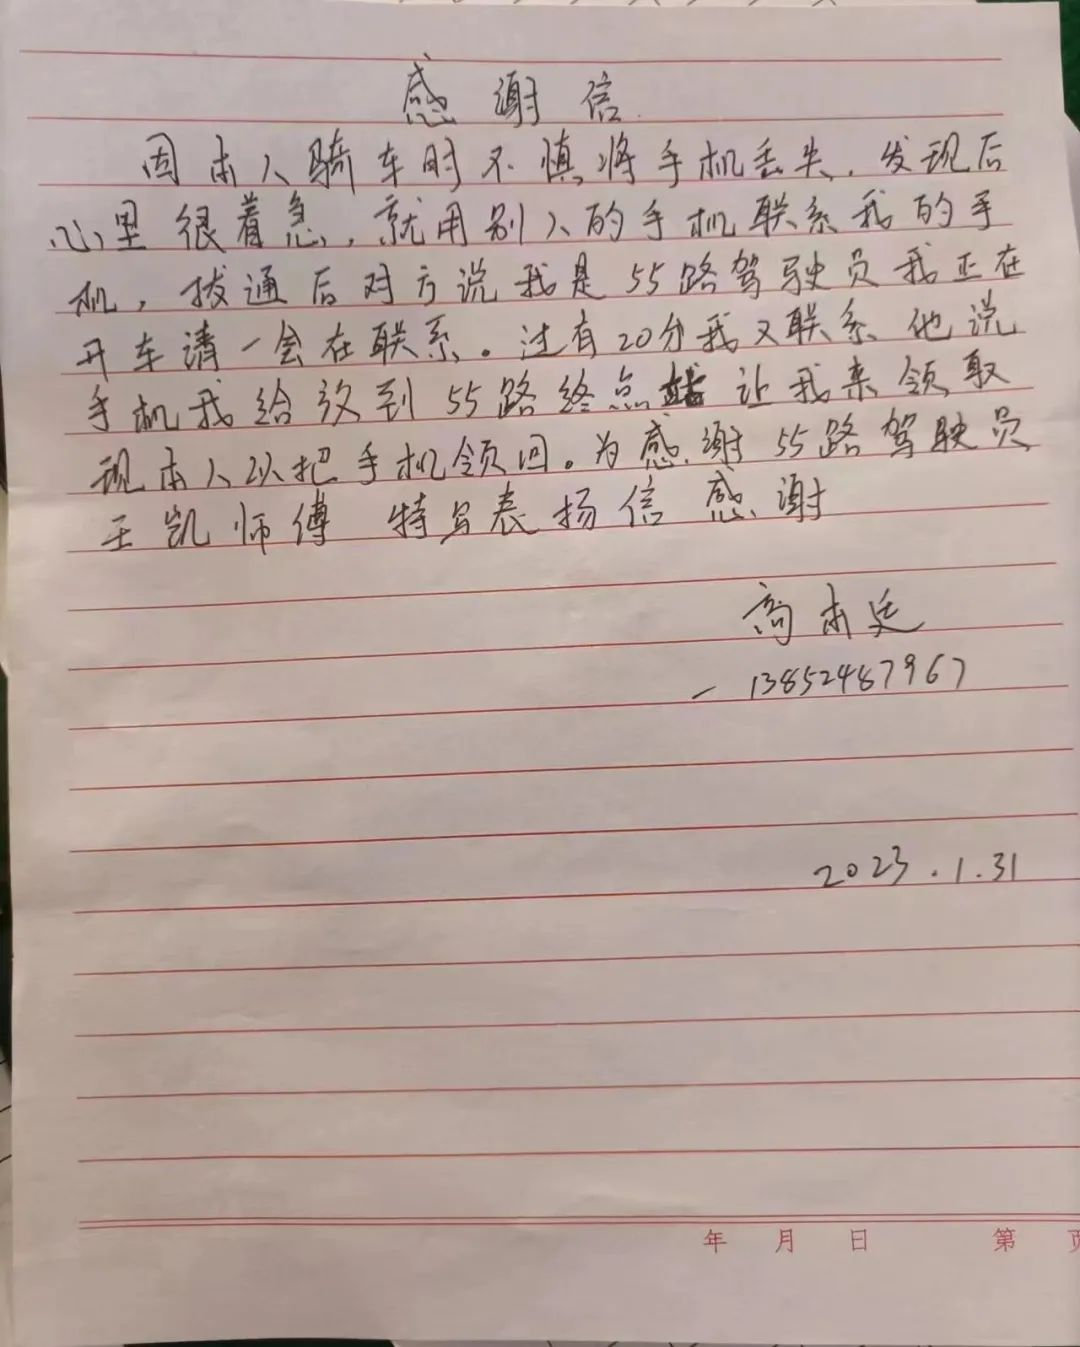 感谢信
因本人骑车时不慎将手机丢失，发现后
心里很着急，就用别人的手机联系我的手
机，拔通后对方说我是55路驾驶员我正在
开车请一会在联系。过有20分我又联系他说
手机我给放到55路终点站让我来领取
现本人以把手机领回。为感谢55路驾驶员
王凯师傅 特写表扬信 感谢
高本廷
13852487967
2023.1.31
年 月 日 第 页